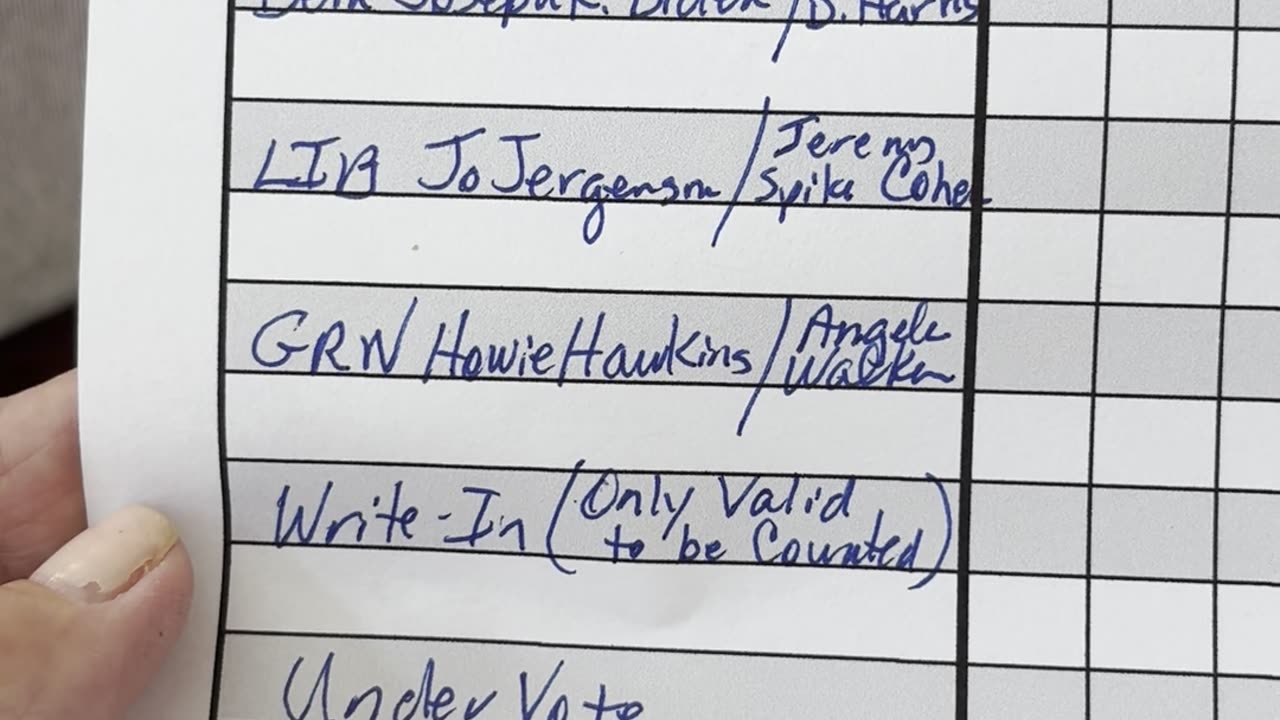 Dem Joseph R. Biden / D. Harris
LIB Jo Jergensen / Jeremy
Spike Cohen
GRN Howie Hawkins / Angela
Walker
Write-In (Only Valid
to be Counted)
Under Vote